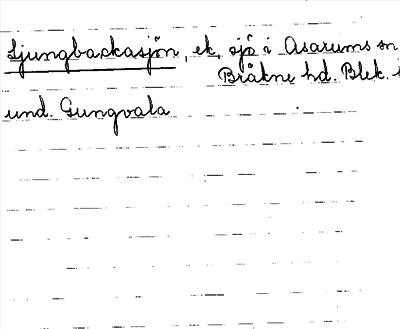 Ljungbackasjön, ek, sjö i Asarums sn
Bräkne hd. Blek. i
und. Gungvala